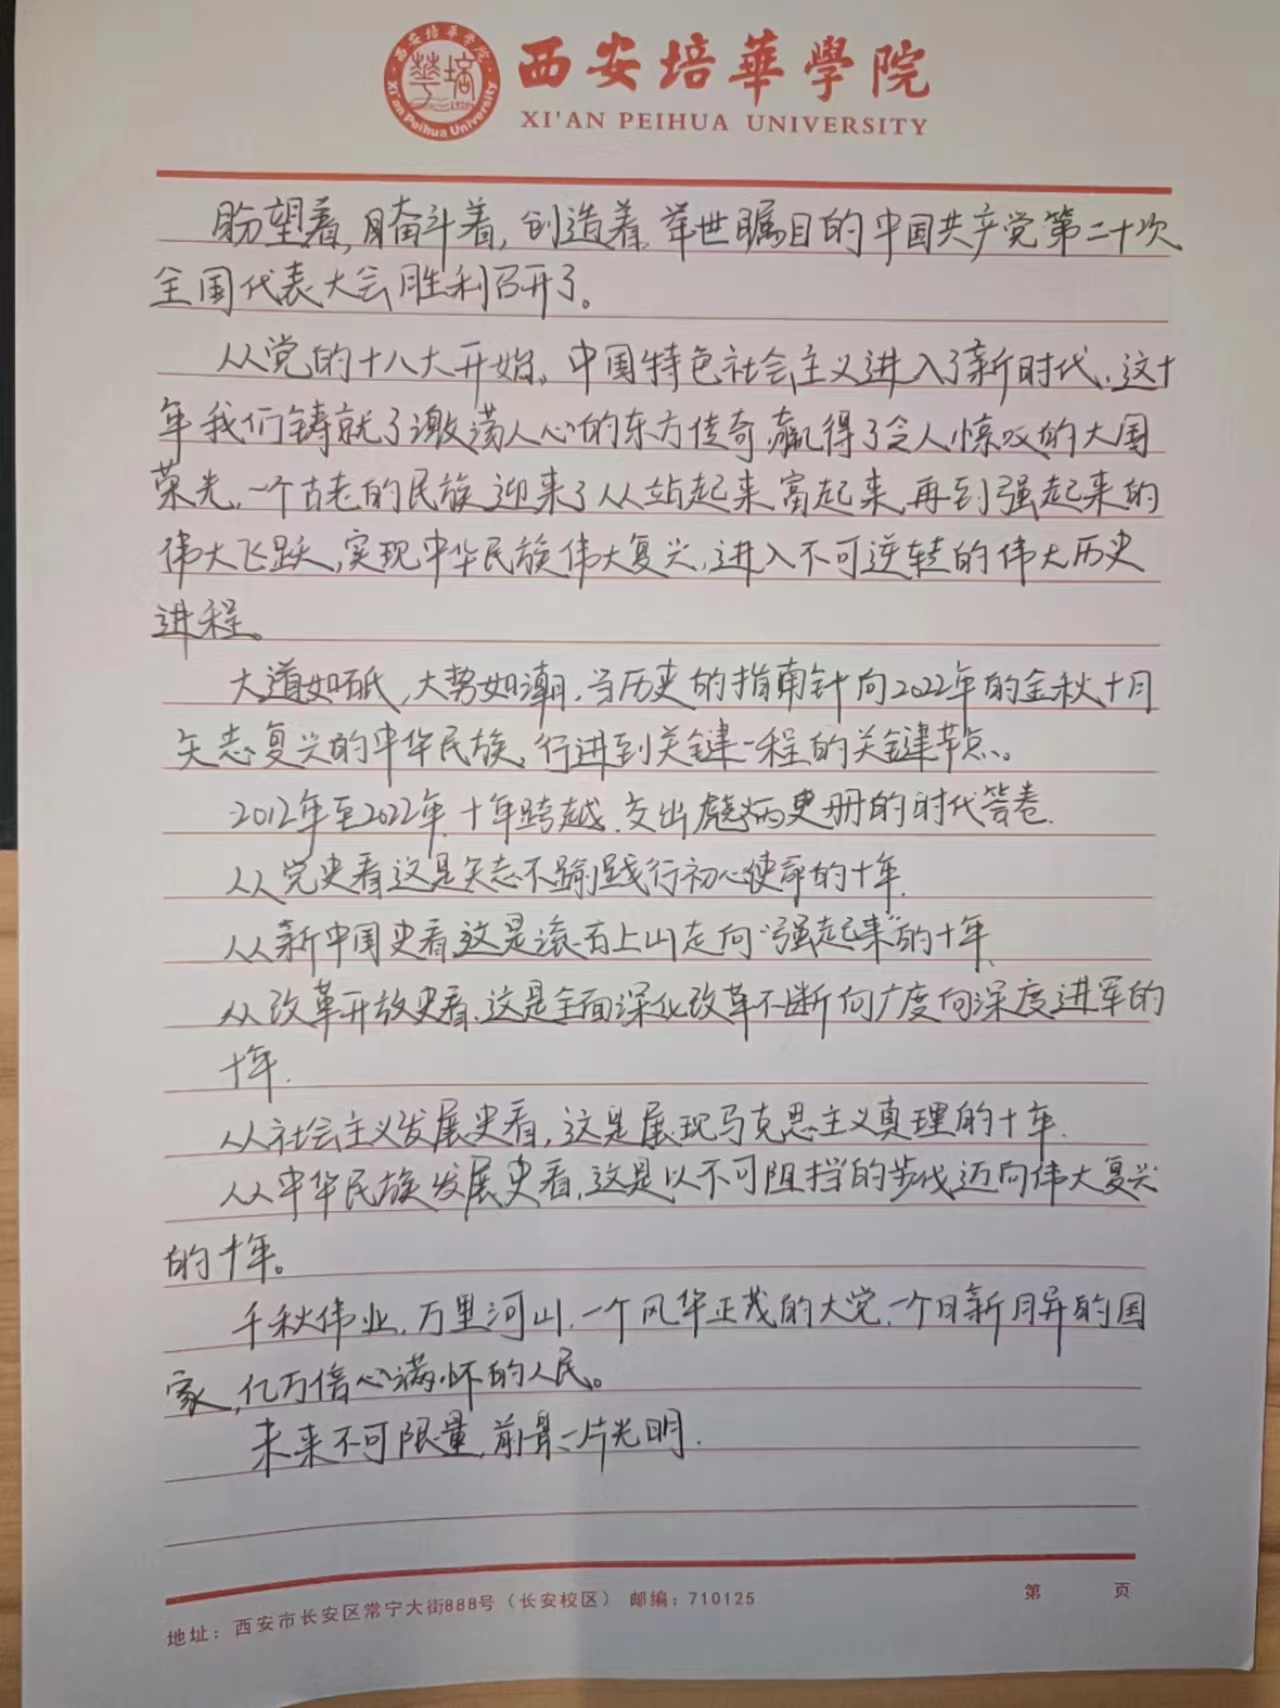 西安培華學院
XI'AN PEIHUA UNIVERSITY
盼望着,奋斗着,创造着,举世瞩目的中国共产党第二十次
全国代表大会胜利召开了。
从党的十八大开始,中国特色社会主义进入了新时代、这十
年我们铸就了激荡人心的东方传奇,赢得了令人惊叹的大国
荣光,一个古老的民族迎来了从站起来富起来再到强起来的
伟大飞跃,实现中华民族伟大复兴,进入不可逆转的伟大历史
进程。
大道如砥,大势如潮,当历史的指南针向2022年的金秋十月
矢志复兴的中华民族,行进到关键一程的关键节点。
2012年至2022年,十年跨越,交出彪炳史册的时代答卷.
从党史看这是矢志不渝践行初心使命的十年.
从新中国史看这是滚石上山走向“强起来”的十年.
从改革开放史看,这是全面深化改革不断向广度向深度进军的
十年.
从社会主义发展史看,这是展现马克思主义真理的十年.
从中华民族发展史看,这是以不可阻挡的步伐迈向伟大复兴
的十年。
千秋伟业,万里河山,一个风华正茂的大党,一个日新月异的国
家,亿万信心满怀的人民。
未来不可限量,前景一片光明.
地址:西安市长安区常宁大街888号(长安校区) 邮编:710125 第 页